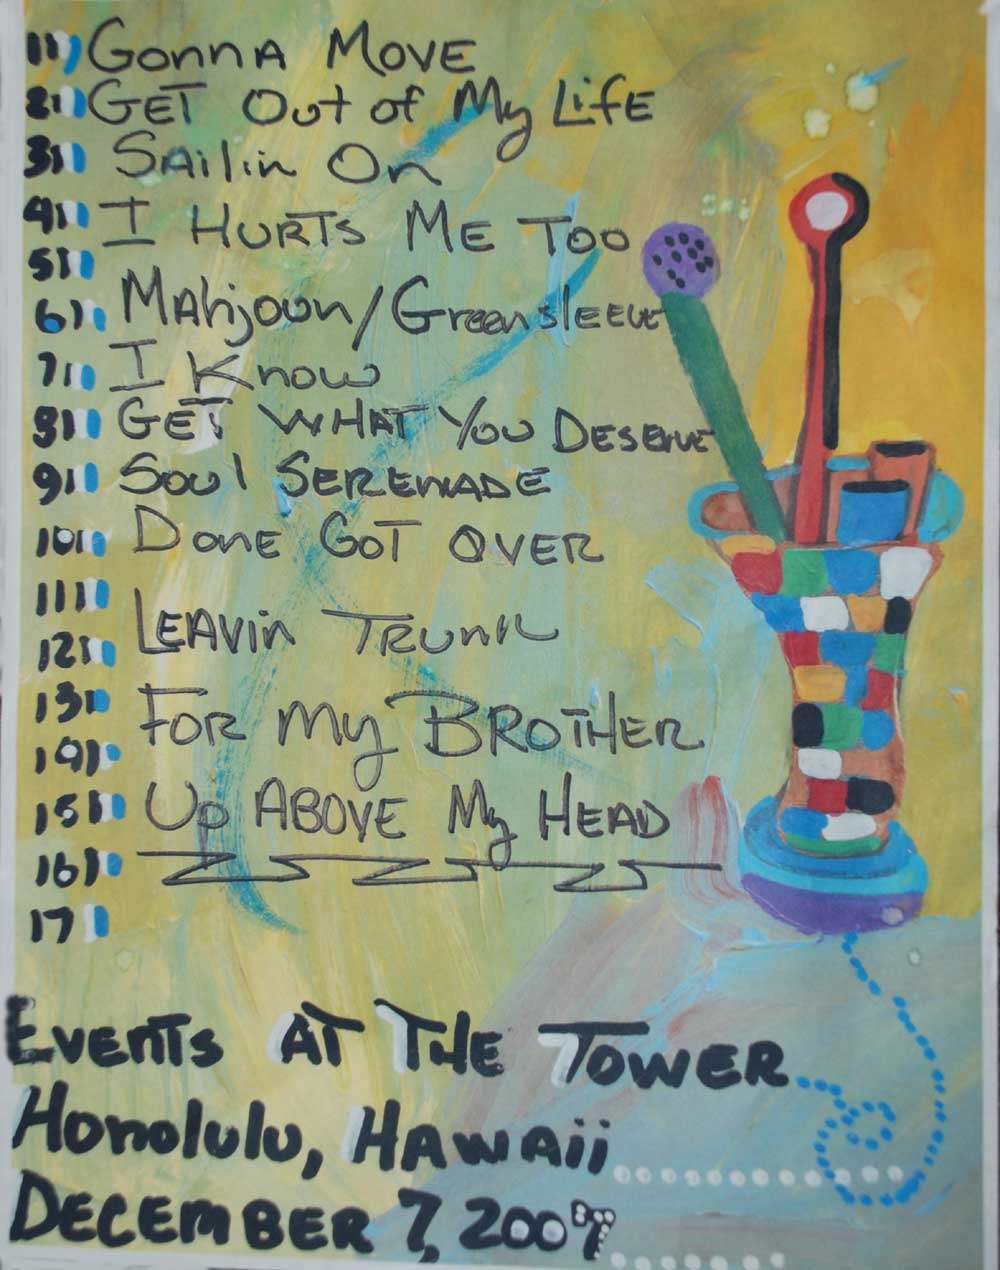 1) Gonna Move
2) Get Out of My Life
3) Sailin On
4) I Hurts Me Too
5)
6) Mahjoun/Greensleeve
7) I Know
8) Get What You Deserve
9) Soul Serenade
10) Done Got Over
11)
12) Leavin Trunk
13) For My Brother
14)
15) Up Above My Head
16)
17)
Events At The Tower
Honolulu, Hawaii
December 7, 2007